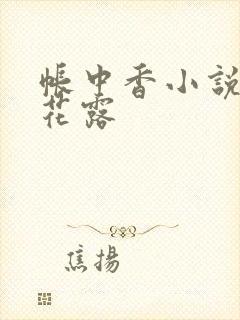 帳中香小說
花露
焦揚